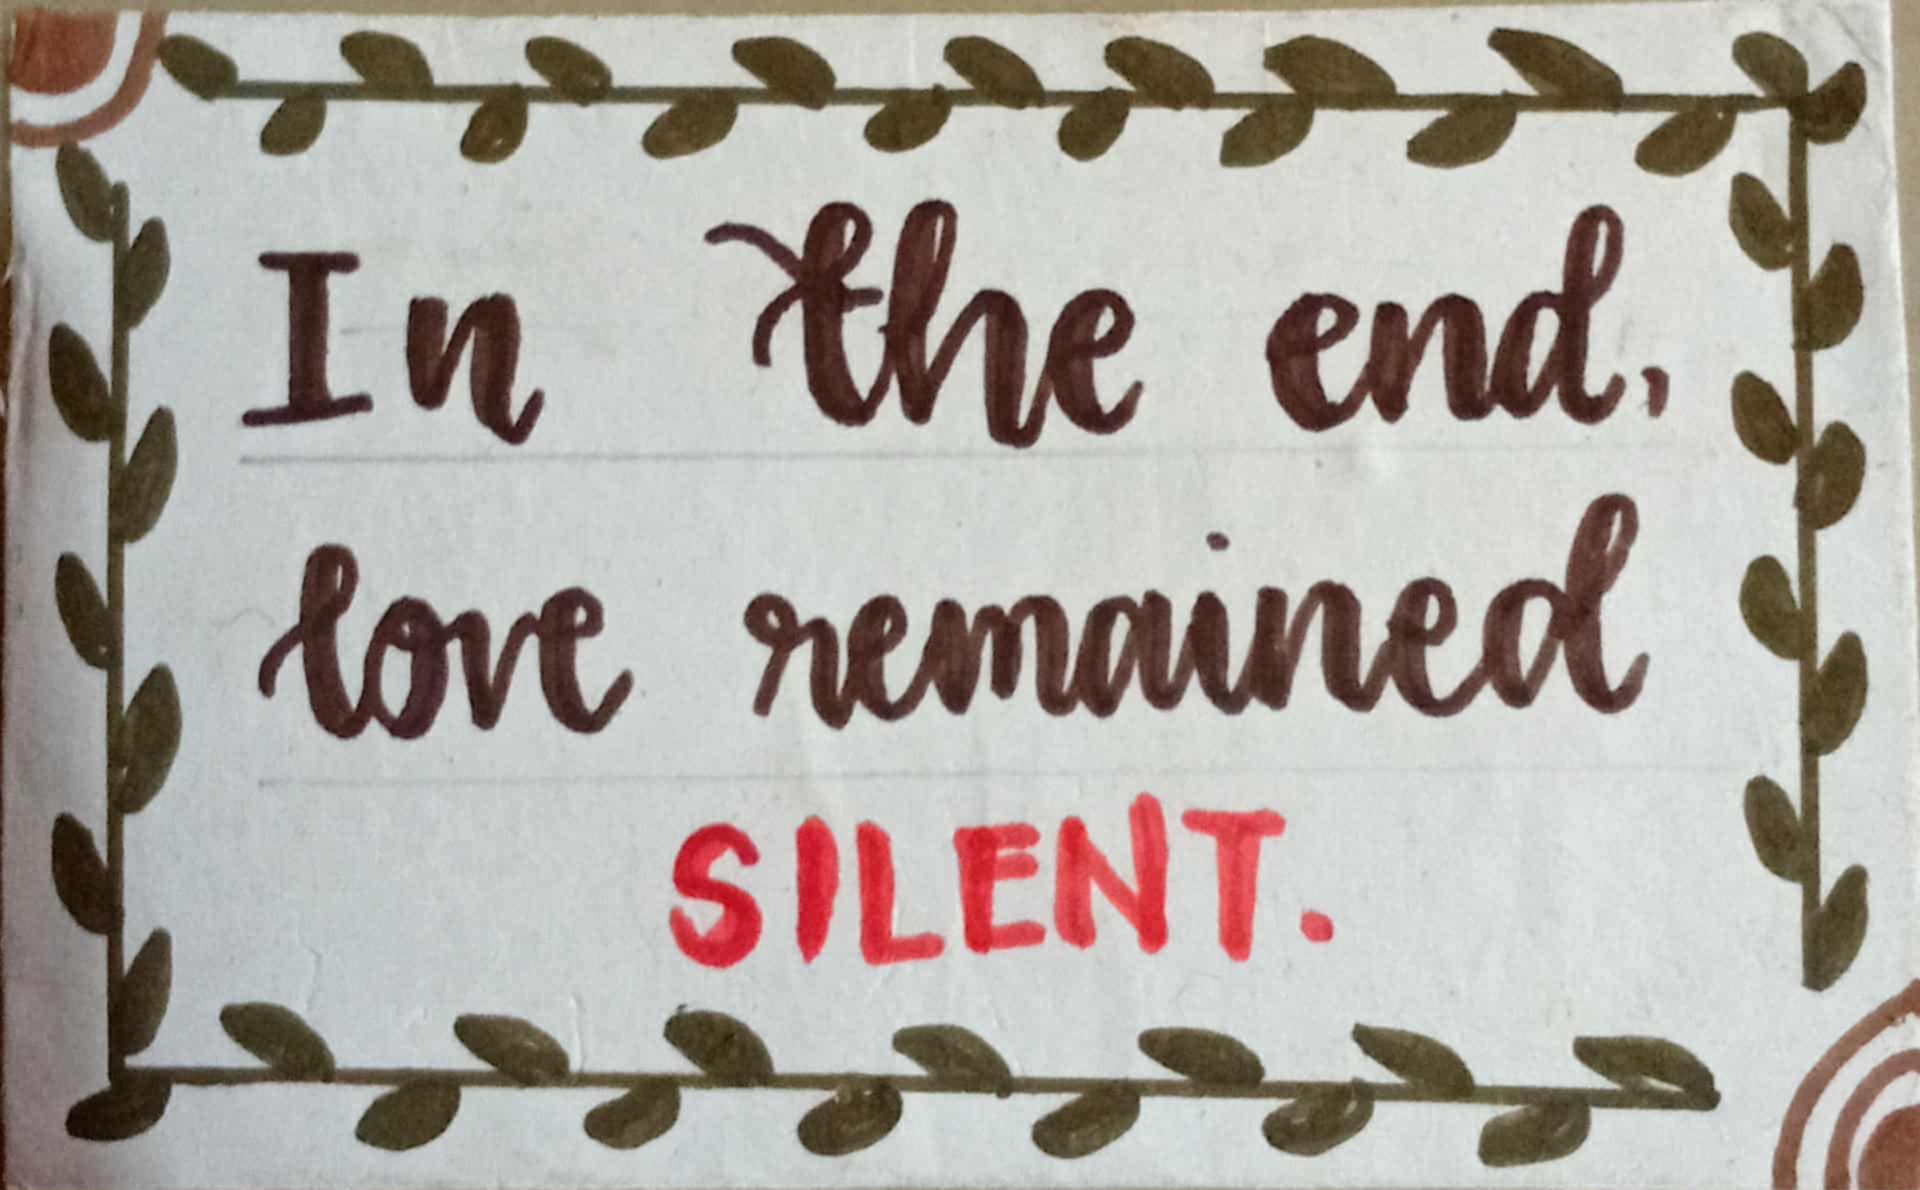 In the end,
love remained
SILENT.